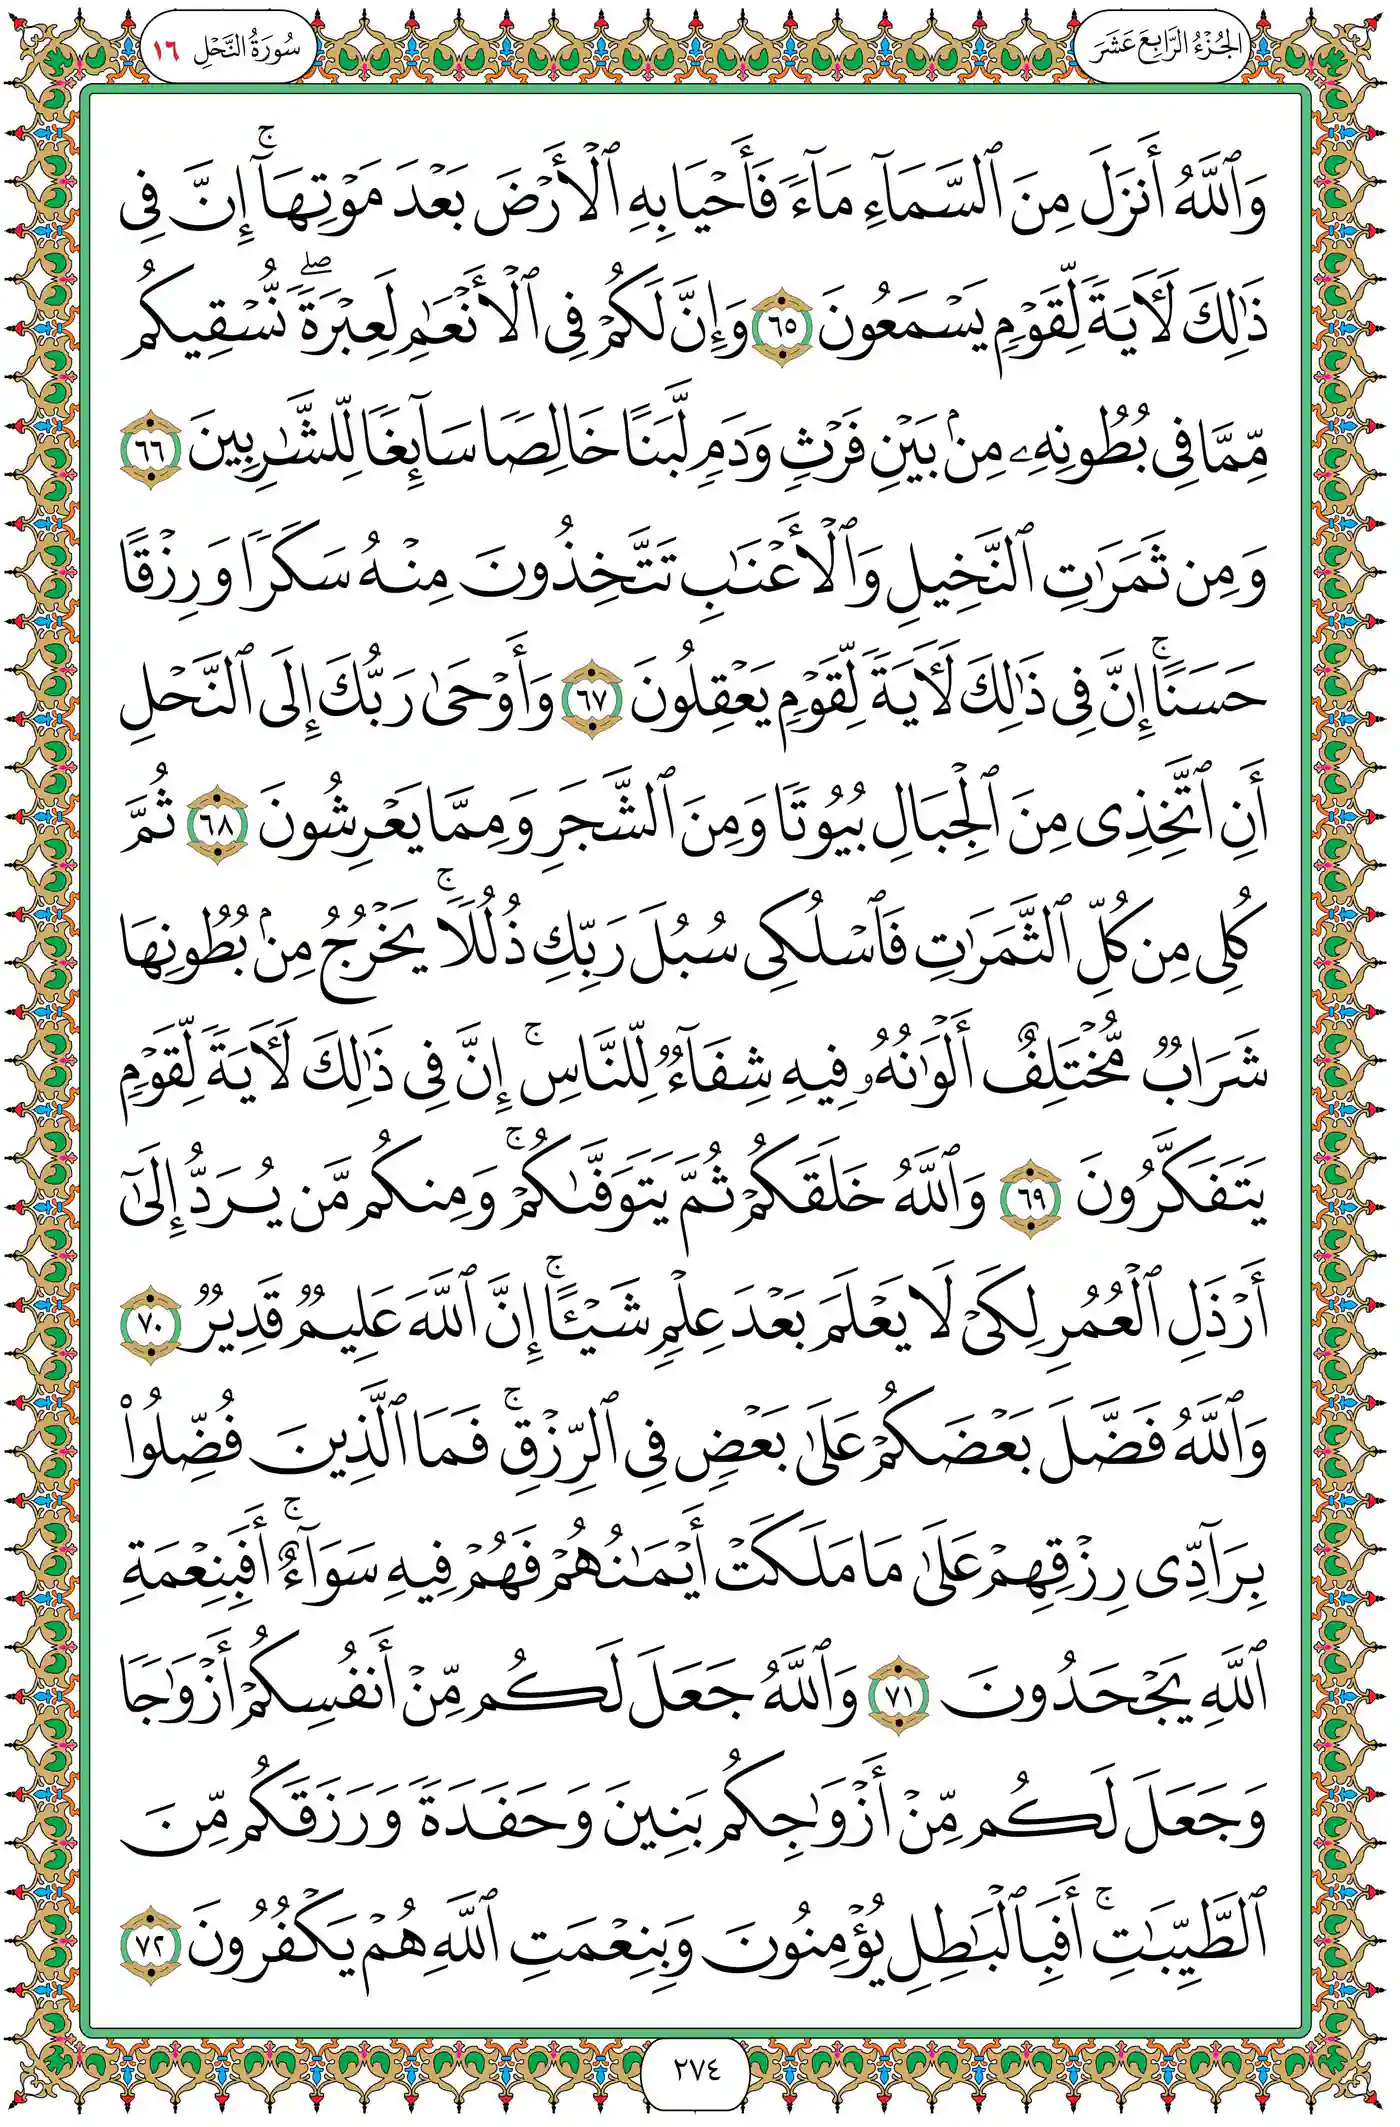 الجُزْءُ الرَّابِعَ عَشَرَ
سُورَةُ النَّحْلِ ١٦
وَٱللَّهُ أَنزَلَ مِنَ ٱلسَّمَآءِ مَآءً فَأَحْيَا بِهِ ٱلْأَرْضَ بَعْدَ مَوْتِهَآ ۚ إِنَّ فِى
ذَٰلِكَ لَـَٔايَةً لِّقَوْمٍ يَسْمَعُونَ ٦٥ وَإِنَّ لَكُمْ فِى ٱلْأَنْعَٰمِ لَعِبْرَةً ۖ نُّسْقِيكُم
مِّمَّا فِى بُطُونِهِۦ مِنۢ بَيْنِ فَرْثٍ وَدَمٍ لَّبَنًا خَالِصًا سَآئِغًا لِّلشَّٰرِبِينَ ٦٦
وَمِن ثَمَرَٰتِ ٱلنَّخِيلِ وَٱلْأَعْنَٰبِ تَتَّخِذُونَ مِنْهُ سَكَرًا وَرِزْقًا
حَسَنًا ۗ إِنَّ فِى ذَٰلِكَ لَـَٔايَةً لِّقَوْمٍ يَعْقِلُونَ ٦٧ وَأَوْحَىٰ رَبُّكَ إِلَى ٱلنَّحْلِ
أَنِ ٱتَّخِذِى مِنَ ٱلْجِبَالِ بُيُوتًا وَمِنَ ٱلشَّجَرِ وَمِمَّا يَعْرِشُونَ ٦٨ ثُمَّ
كُلِى مِن كُلِّ ٱلثَّمَرَٰتِ فَٱسْلُكِى سُبُلَ رَبِّكِ ذُلُلًا ۚ يَخْرُجُ مِنۢ بُطُونِهَا
شَرَابٌ مُّخْتَلِفٌ أَلْوَٰنُهُۥ فِيهِ شِفَآءٌ لِّلنَّاسِ ۚ إِنَّ فِى ذَٰلِكَ لَـَٔايَةً لِّقَوْمٍ
يَتَفَكَّرُونَ ٦٩ وَٱللَّهُ خَلَقَكُمْ ثُمَّ يَتَوَفَّىٰكُمْ ۚ وَمِنكُم مَّن يُرَدُّ إِلَىٰٓ
أَرْذَلِ ٱلْعُمُرِ لِكَىْ لَا يَعْلَمَ بَعْدَ عِلْمٍ شَيْـًٔا ۚ إِنَّ ٱللَّهَ عَلِيمٌ قَدِيرٌ ٧٠
وَٱللَّهُ فَضَّلَ بَعْضَكُمْ عَلَىٰ بَعْضٍ فِى ٱلرِّزْقِ ۚ فَمَا ٱلَّذِينَ فُضِّلُوا۟
بِرَآدِّى رِزْقِهِمْ عَلَىٰ مَا مَلَكَتْ أَيْمَٰنُهُمْ فَهُمْ فِيهِ سَوَآءٌ ۚ أَفَبِنِعْمَةِ
ٱللَّهِ يَجْحَدُونَ ٧١ وَٱللَّهُ جَعَلَ لَكُم مِّنْ أَنفُسِكُمْ أَزْوَٰجًا
وَجَعَلَ لَكُم مِّنْ أَزْوَٰجِكُم بَنِينَ وَحَفَدَةً وَرَزَقَكُم مِّنَ
ٱلطَّيِّبَٰتِ ۚ أَفَبِٱلْبَٰطِلِ يُؤْمِنُونَ وَبِنِعْمَتِ ٱللَّهِ هُمْ يَكْفُرُونَ ٧٢
٢٧٤